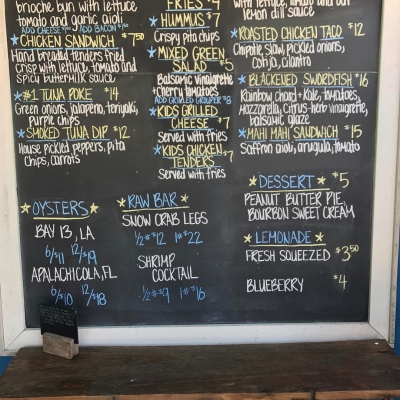 brioche bun with lettuce,
tomato and garlic aioli
ADD CHEESE $1 ADD BACON $2
CHICKEN SANDWICH $7.50
Hand breaded tenders fried
Crisp with lettuce, tomato and
Spicy buttermilk sauce
#1 TUNA POKE $14
Green onions, jalapeno, teriyaki,
purple chips
SMOKED TUNA DIP $12
House pickled peppers, pita
Chips, carrots
FRIES $4
HUMMUS $7
Crispy pita chips
MIXED GREEN
SALAD $5
Balsamic vinaigrette
+ cherry tomatoes
ADD GRILLED GROUPER $8
KIDS GRILLED
CHEESE $7
Served with fries
KIDS CHICKEN
TENDERS $7
Served with fries
with lettuce, tomato and
lemon dill sauce
ROASTED CHICKEN TACO $12
Chipotle slaw, pickled onions,
Cotija, cilantro
BLACKENED SWORDFISH $16
Rainbow Chard + Kale, tomatoes,
Mozzarella, Citrus-herb vinaigrette,
balsamic glaze
MAHI MAHI SANDWICH $15
Saffron aioli, arugula, tomato
OYSTERS
BAY 13, LA
6/$11 12/$19
APALACHICOLA, FL
6/$10 12/$18
RAW BAR
SNOW CRAB LEGS
1/2# $12 1# $22
SHRIMP
COCKTAIL
1/2# $9 1# $16
DESSERT $5
PEANUT BUTTER PIE,
BOURBON SWEET CREAM
LEMONADE
FRESH SQUEEZED $3.50
BLUEBERRY $4